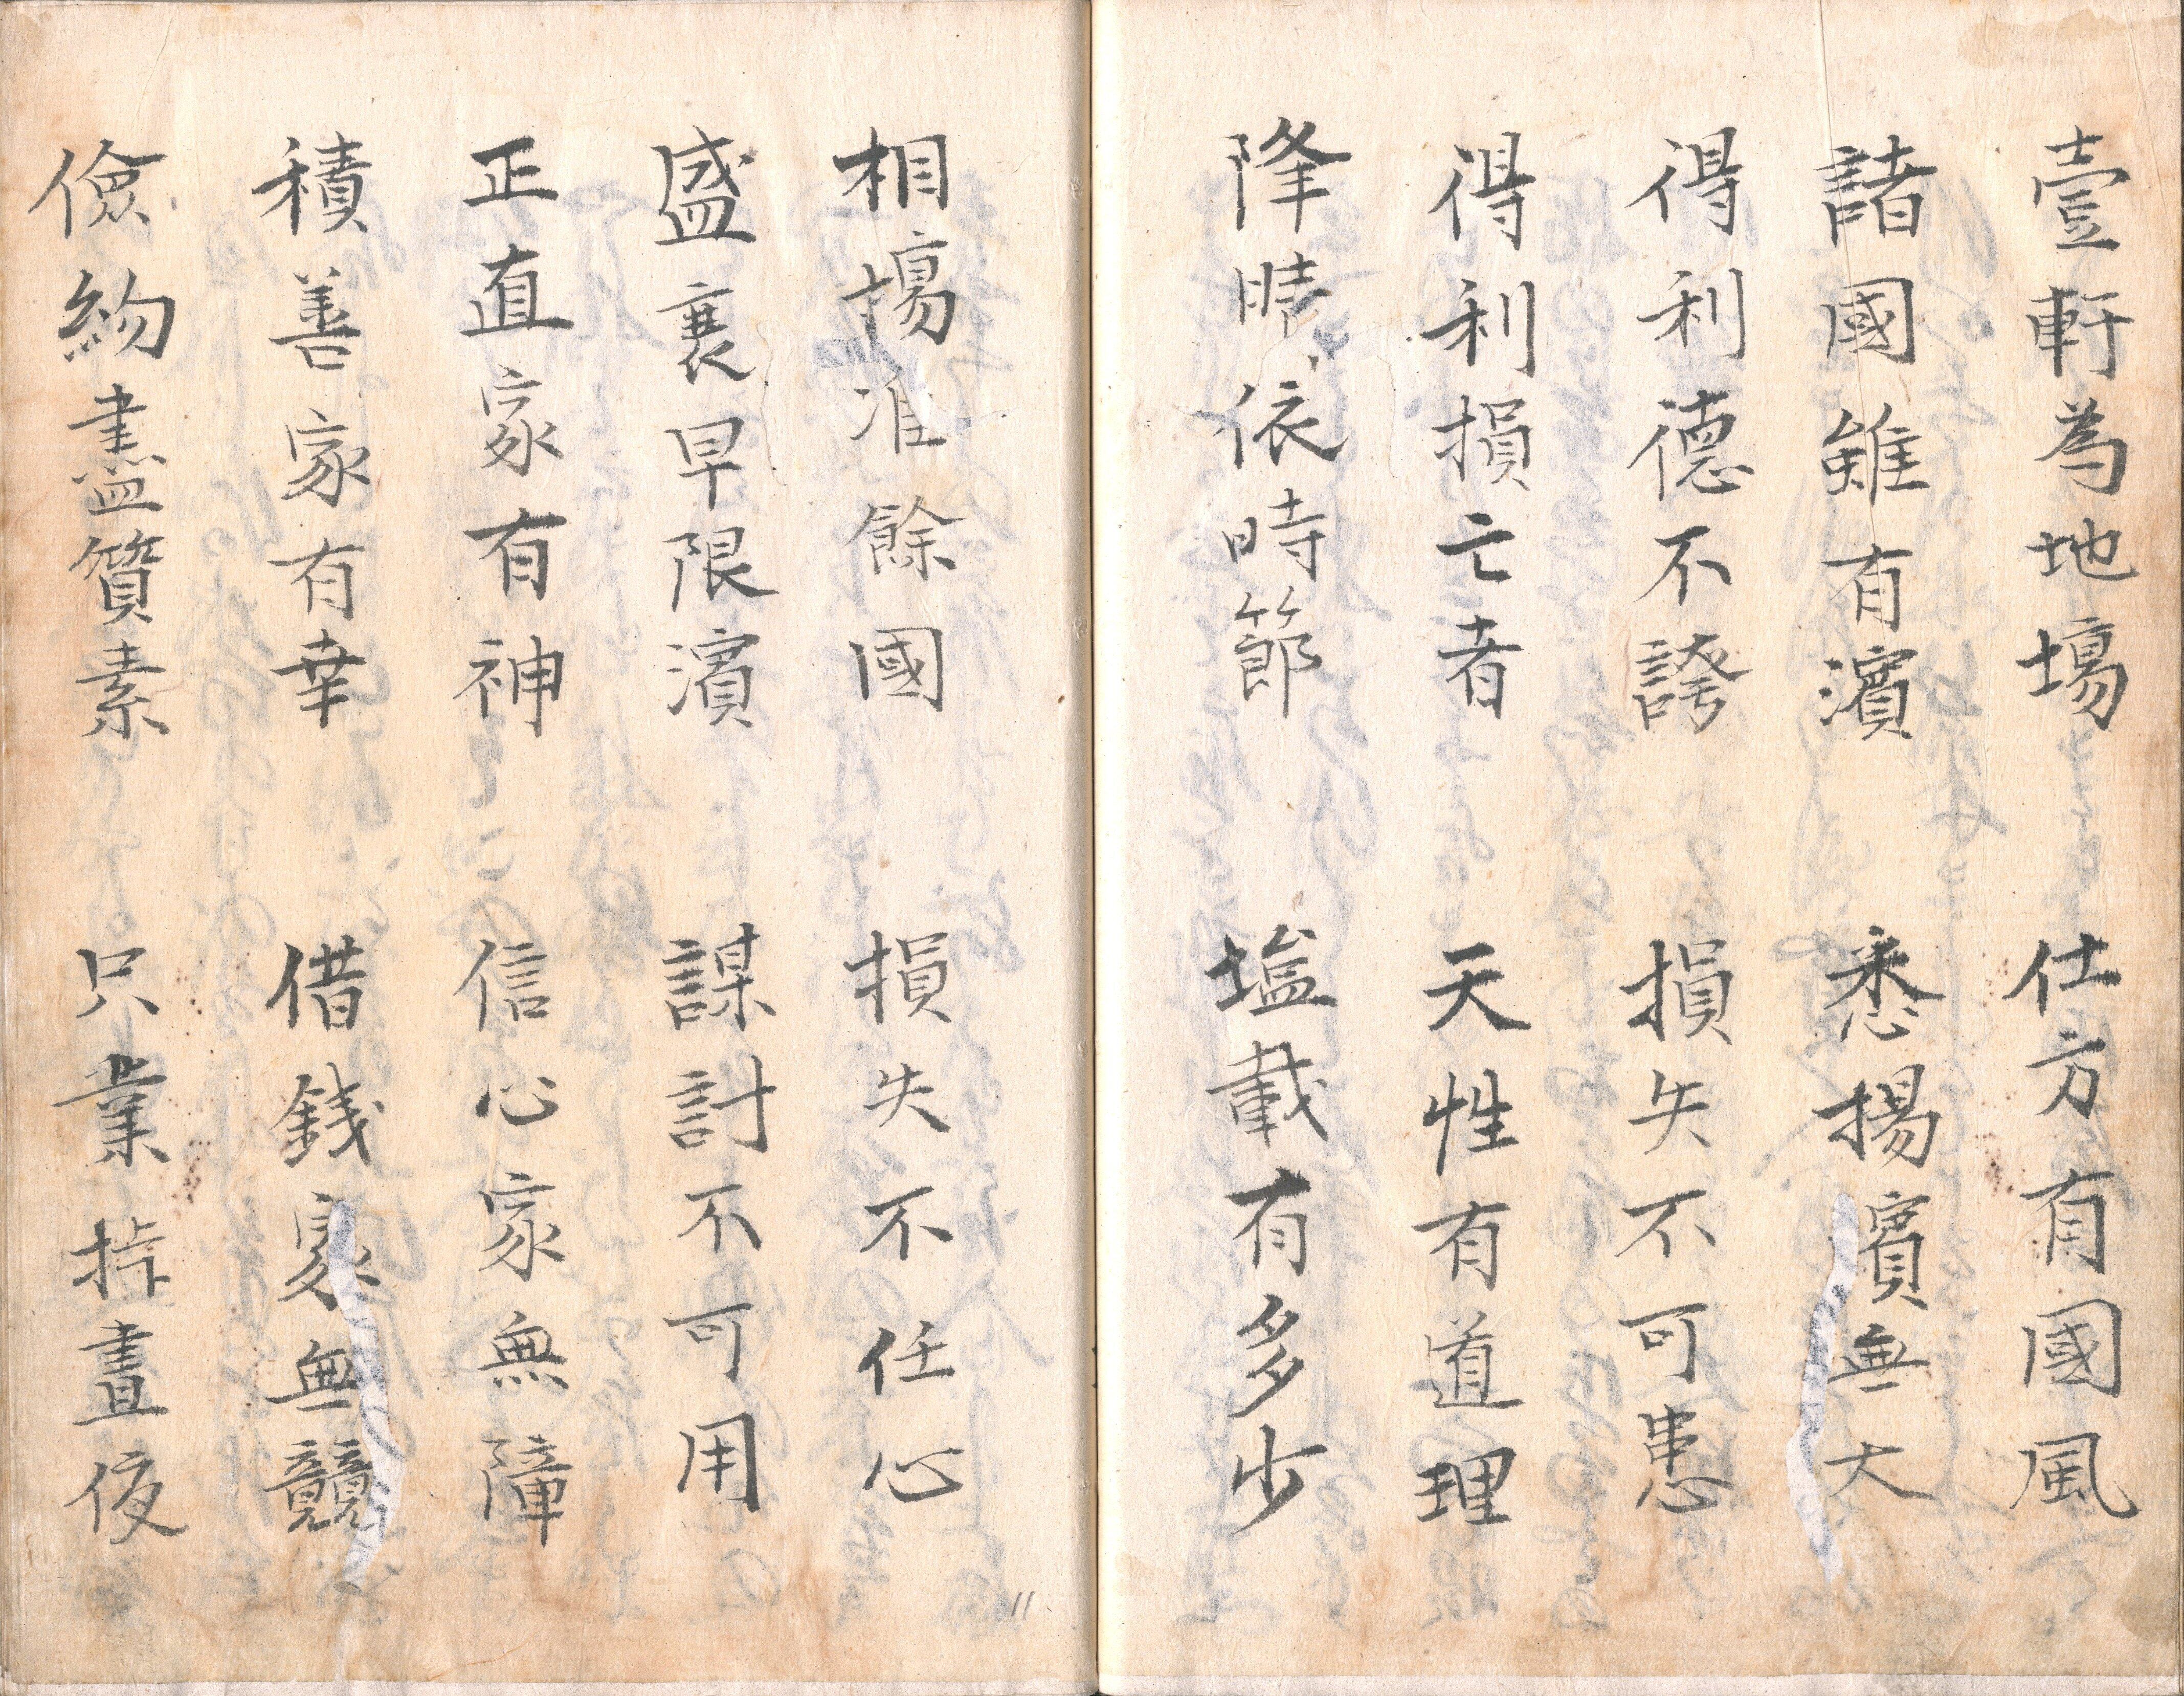 壹軒為地塲　仕方有國風
諸國雖有濱　悉揚濱無大
得利德不誇　損失不可患
得利損亡者　天性有道理
降晴依時節　塩載有多少
相塲准餘國　損失不任心
盛衰早限濱　謀計不可用
正直家有神　信心家無障
積善家有幸　借銭家無競
儉約盡質素　只業挊晝夜
11